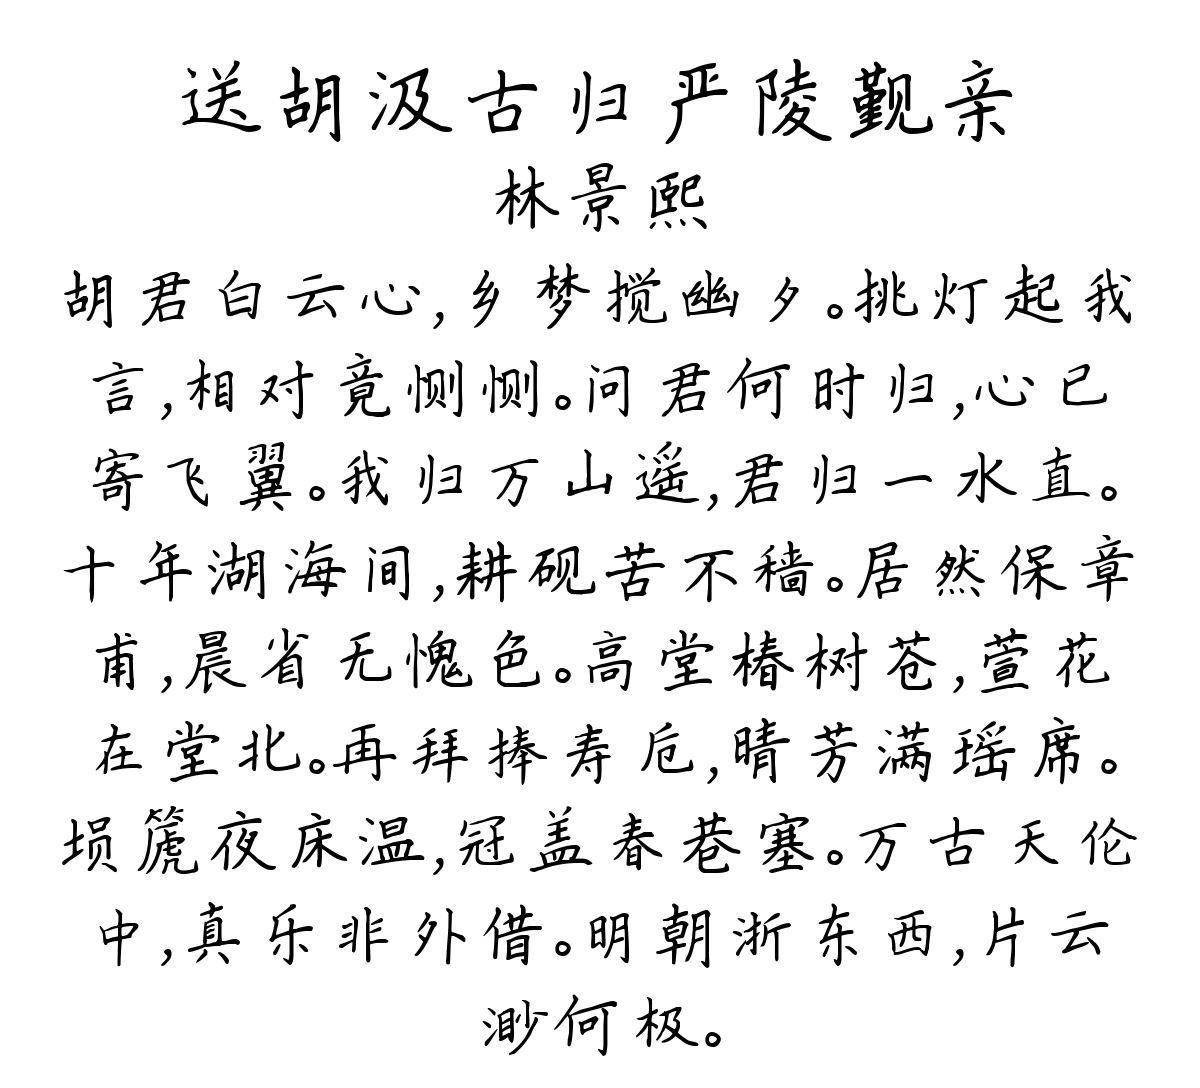 送胡汲古归严陵觐亲
林景熙
胡君白云心,乡梦搅幽夕。挑灯起我
言,相对竟恻恻。问君何时归,心已
寄飞翼。我归万山遥,君归一水直。
十年湖海间,耕砚苦不穑。居然保章
甫,晨省无愧色。高堂椿树苍,萱花
在堂北。再拜捧寿卮,晴芳满瑶席。
埙篪夜床温,冠盖春巷塞。万古天伦
中,真乐非外借。明朝浙东西,片云
渺何极。